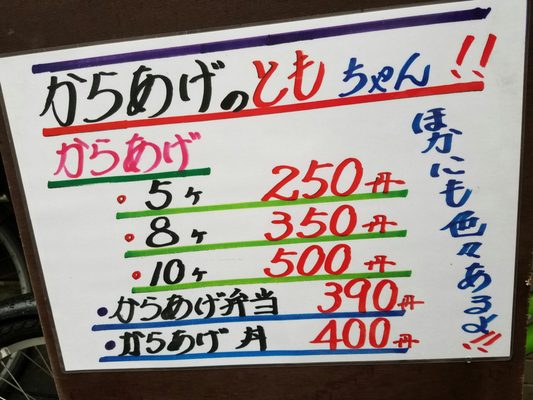 からあげのともちゃん!!
からあげ
5ヶ 250円
8ヶ 350円
10ヶ 500円
・からあげ弁当 390円
・からあげ丼 400円
ほかにも色々あるよ!!